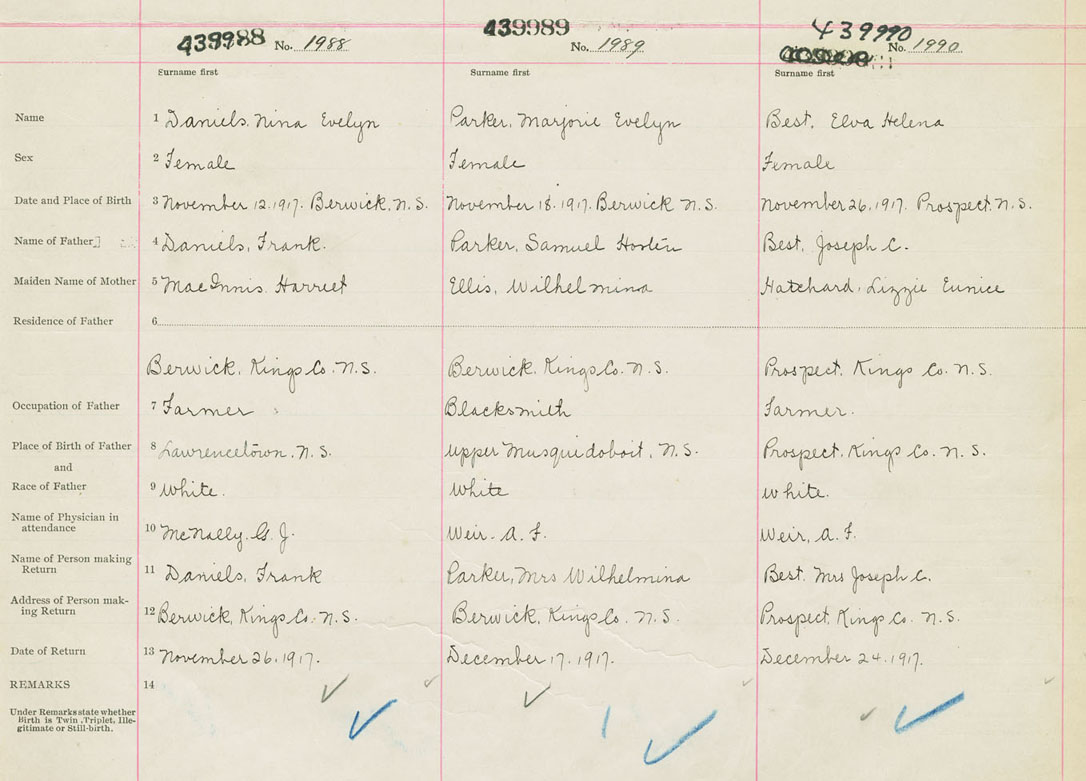 439988 No. 1988 439989 No. 1989 439990 No. 1990
Surname first Surname first Surname first
Name 1 Daniels, Nina Evelyn Parker, Marjorie Evelyn Best, Elva Helena
Sex 2 Female Female Female
Date and Place of Birth 3 November 12. 1917. Berwick, N.S. November 18. 1917. Berwick N.S. November 26, 1917. Prospect, N.S.
Name of Father 4 Daniels, Frank. Parker, Samuel Best, Joseph C.
Maiden Name of Mother 5 MacInnis Harriet Ellis, Wilhelmina Hatchard, Lizzie Eunice
Residence of Father 6
Berwick, Kings Co. N.S. Berwick, Kings Co. N.S. Prospect, Kings Co. N.S.
Occupation of Father 7 Farmer Blacksmith Farmer.
Place of Birth of Father 8 Lawrencetown, N.S. Upper Musquidoboit, N.S. Prospect, Kings Co. N.S.
and
Race of Father 9 White. White White.
Name of Physician in
attendance 10 McNally, G. J. Weir. A. F. Weir, A. F.
Name of Person making
Return 11 Daniels, Frank Parker, Mrs Wilhelmina Best. Mrs Joseph C.
Address of Person mak-
ing Return 12 Berwick, Kings Co. N.S. Berwick, Kings Co. N.S. Prospect, Kings Co. N.S.
Date of Return 13 November 26. 1917. December 17. 1917. December 24. 1917.
REMARKS 14
Under Remarks state whether
Birth is Twin, Triplet, Ille-
gitimate or Still-birth.